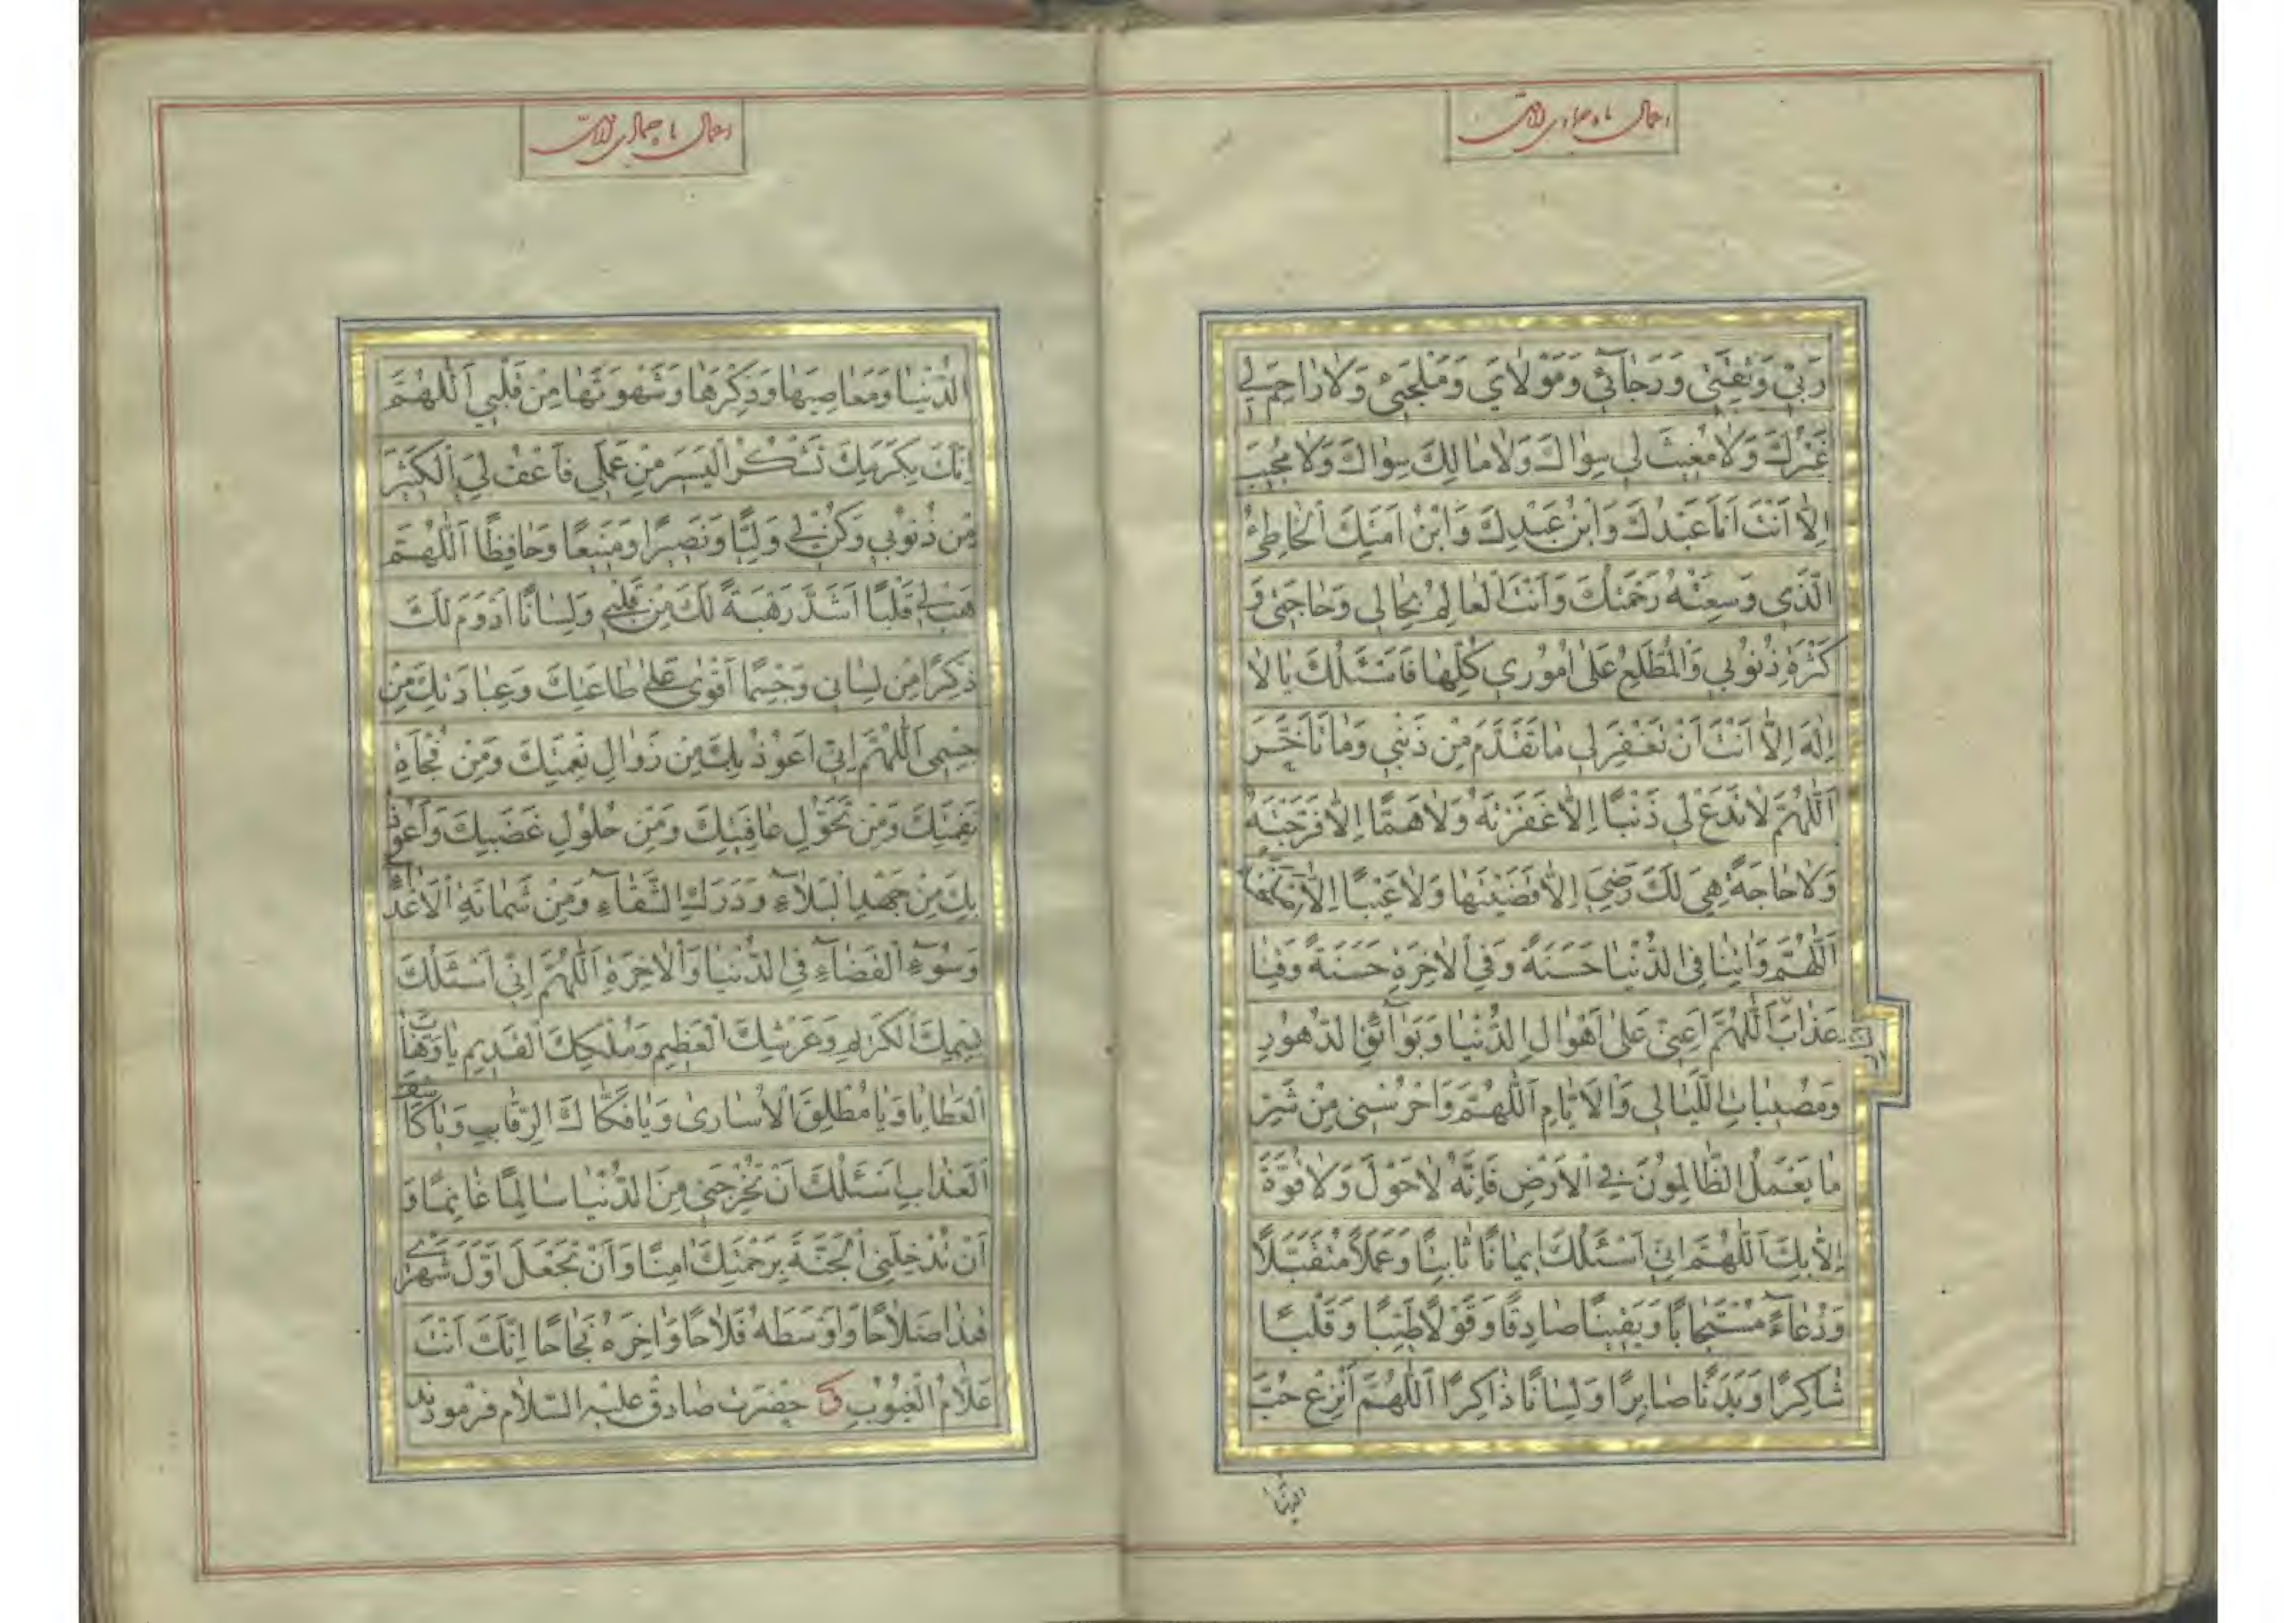 اعمال ماه جمادی الثانی
رَبّي وَثِقَتي وَرَجائي وَمَوْلايَ وَمَلْجَئي وَلا راحِمَ لي
غَيْرُكَ وَلا مُغيثَ لي سِواكَ وَلا مالِكَ سِواكَ وَلا مُجيبَ
اِلّا اَنْتَ اَنَا عَبْدُكَ وَابْنُ عَبْدِكَ وَابْنُ اَمَتِكَ الْخاطِئُ
الَّذي وَسِعَتْهُ رَحْمَتُكَ وَاَنْتَ الْعالِمُ بِحالي وَحاجَتي وَ
كَثْرَةِ ذُنُوبي وَالْمُطَّلِعُ عَلى اُمُوري كُلِّها فَاَسْئَلُكَ يا لا
اِلهَ اِلّا اَنْتَ اَنْ تَغْفِرَ لي ما تَقَدَّمَ مِنْ ذَنْبي وَما تَاَخَّرَ
اَللّهُمَّ لا تَدَعْ لي ذَنْبًا اِلّا غَفَرْتَهُ وَلا هَمًّا اِلّا فَرَّجْتَهُ
وَلا حاجَةً هِيَ لَكَ رِضيً اِلّا قَضَيْتَها وَلا عَيْبًا اِلّا
اَللّهُمَّ وَاتِنا فِي الدُّنْيا حَسَنَةً وَفِي الْاخِرَةِ حَسَنَةً وَقِنا
عَذابَ اَللّهُمَّ اَعِنّي عَلى اَهْوالِ الدُّنْيا وَبَوائِقِ الدُّهُورِ
وَمُصيباتِ اللَّيالي وَالْاَيّامِ اَللّهُمَّ وَاحْرُسْني مِنْ شَرِّ
ما يَعْمَلُ الظّالِمُونَ فِي الْاَرْضِ فَاِنَّهُ لا حَوْلَ وَلا قُوَّةَ
اِلّا بِكَ اَللّهُمَّ اِنّي اَسْئَلُكَ ايمانًا ثابِتًا وَعَمَلًا مُتَقَبَّلًا
وَدُعاءً مُسْتَجابًا وَيَقينًا صادِقًا وَقَوْلًا طَيِّبًا وَقَلْبًا
شاكِرًا وَبَدَنًا صابِرًا وَلِسانًا ذاكِرًا اَللّهُمَّ اَنْزِعْ حُبَّ
الدُّنْيا
اعمال ماه جمادی الثانی
الدُّنْيا وَمَعاصِيَها وَذِكْرَها وَشَهْوَتَها مِنْ قَلْبي اَللّهُمَّ
اِنَّكَ بِكَرَمِكَ تَشْكُرُ الْيَسيرَ مِنْ عَمَلي فَاعْفُ لِيَ الْكَثيرَ
مِنْ ذُنُوبي وَكُنْ لي وَلِيًّا وَنَصيرًا وَمَنيعًا وَحافِظًا اَللّهُمَّ
هَبْ لي قَلْبًا اَشَدَّ رَهْبَةً لَكَ مِنْ قَلْبي وَلِسانًا اَدْوَمَ لَكَ
ذِكْرًا مِنْ لِساني وَجِسْمًا اَقْوى عَلى طاعَتِكَ وَعِبادَتِكَ مِنْ
جِسْمي اَللّهُمَّ اِنّي اَعُوذُ بِكَ مِنْ زَوالِ نِعْمَتِكَ وَمِنْ فُجْاَةِ
نَقِمَتِكَ وَمِنْ تَحَوُّلِ عافِيَتِكَ وَمِنْ حُلُولِ غَضَبِكَ وَاَعُوذُ
بِكَ مِنْ جَهْدِ الْبَلاءِ وَدَرَكِ الشَّقاءِ وَمِنْ شَماتَةِ الْاَعْداءِ
وَسُوءِ الْقَضاءِ فِي الدُّنْيا وَالْاخِرَةِ اَللّهُمَّ اِنّي اَسْئَلُكَ
بِسْمِكَ الْكَريمِ وَعَرْشِكَ الْعَظيمِ وَمُلْكِكَ الْقَديمِ يا وَهّابَ
الْعَطايا وَيا مُطْلِقَ الْاُسارى وَيا فَكّاكَ الرِّقابِ وَيا كاشِفَ
الْعَذابِ اَسْئَلُكَ اَنْ تُخْرِجَني مِنَ الدُّنْيا سالِمًا غانِمًا وَ
اَنْ تُدْخِلَنِي الْجَنَّةَ بِرَحْمَتِكَ امِنًا وَاَنْ تَجْعَلَ اَوَّلَ شَهْري
هذا صَلاحًا وَاَوْسَطَهُ فَلاحًا وَاخِرَهُ نَجاحًا اِنَّكَ اَنْتَ
عَلّامُ الْغُيُوبِ وَ حضرت صادق عليه السّلام فرمودند